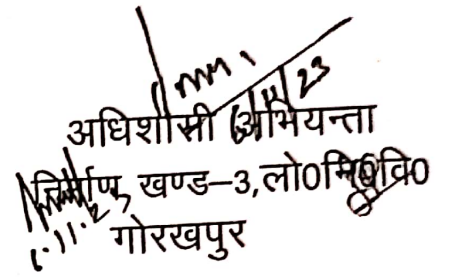 अधिशासी अभियन्ता
निर्माण खण्ड-3,लो0नि0वि0
गोरखपुर